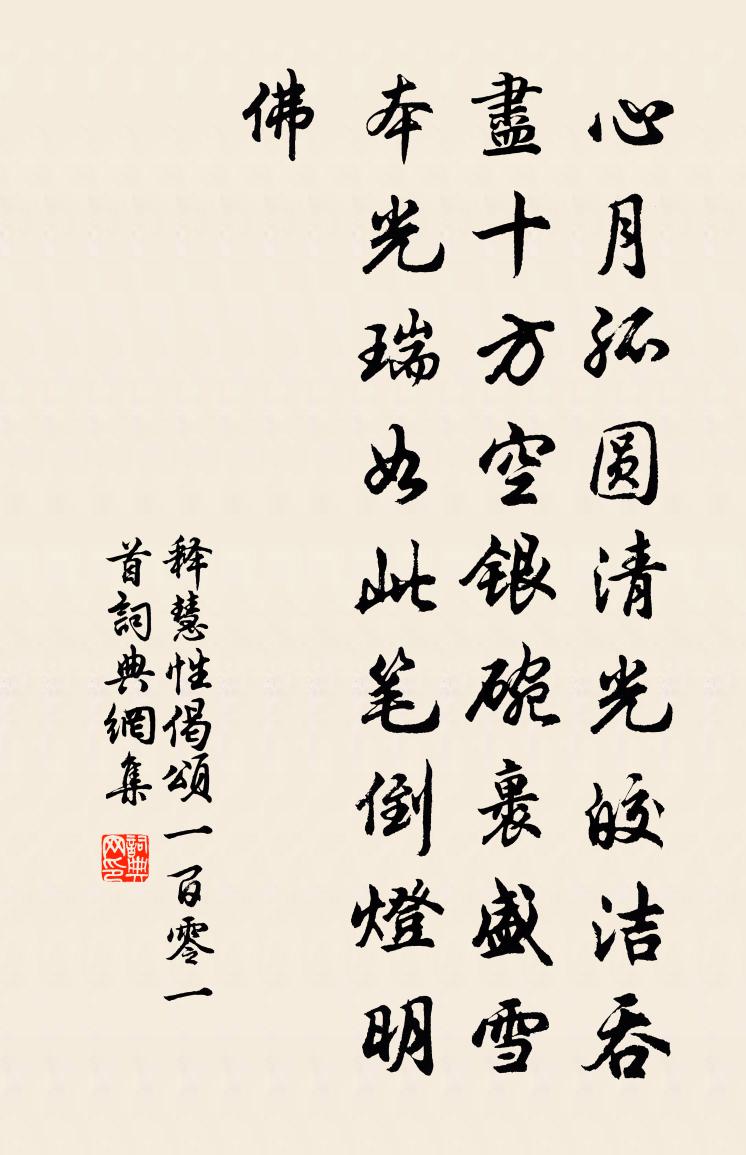 心月孤圆清光皎洁吞
盡十方空銀碗裹盛雪
本光瑞如此笔倒燈明
佛
释慧性偈頌一百零一
首詞典網集
詞典
网印